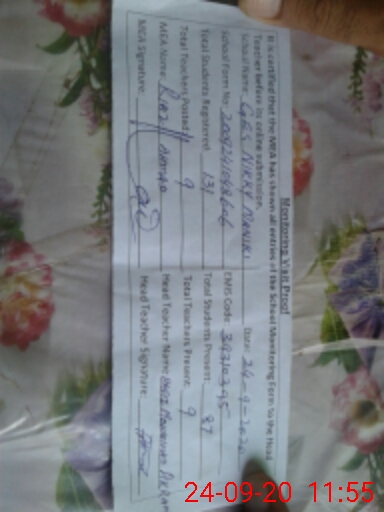 Monitoring Visit Proof
It is certified that the MEA has shown all entries of the School Monitoring Form to the Head
Teacher before its online submission.
School Name: Date: 24-9-2020
School Form No: EMIS Code:
Total Students Registered: 131 Total Students Present: 87
Total Teachers Posted: 9 Total Teachers Present: 9
MEA Name: Riaz Ahmad Head Teacher Name:
MEA Signature: Head Teacher Signature:
24-09-20 11:55